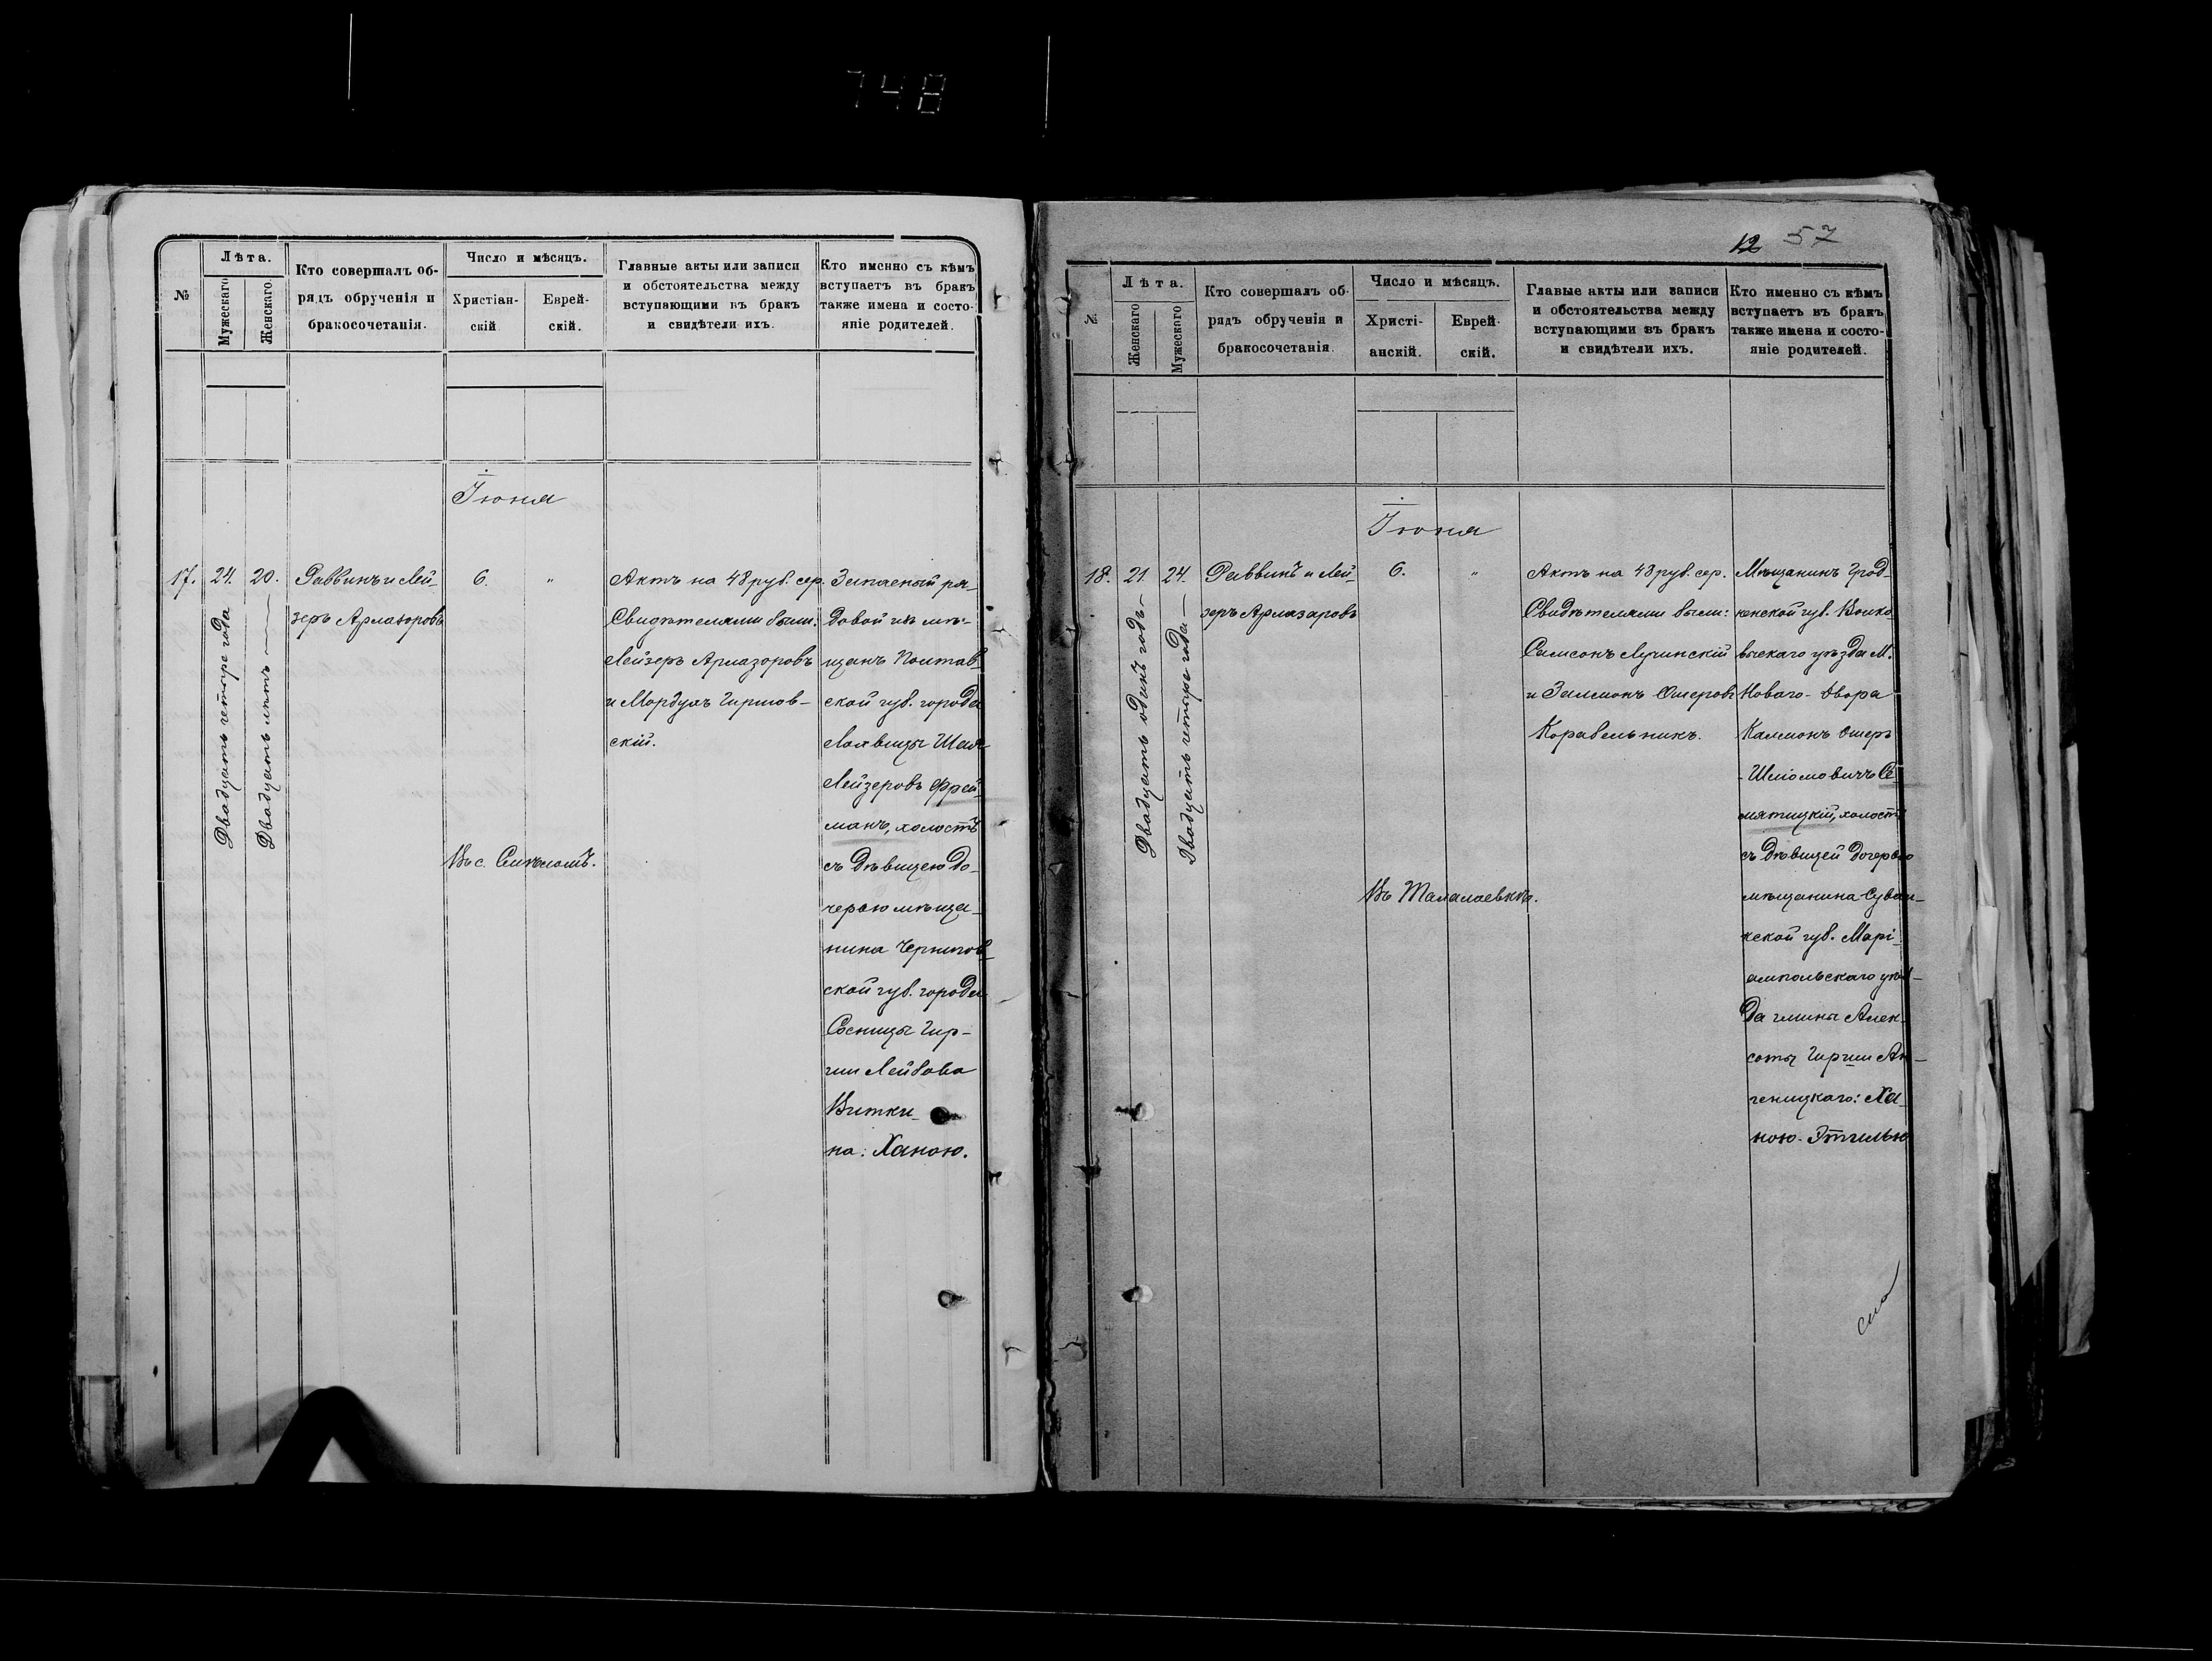 748
№
Лѣта.
Мужескаго
Женскаго.
Кто совершалъ об-
рядъ обрученія и
бракосочетанія.
Число и мѣсяцъ.
Христіан-
скій.
Еврей-
скій.
Главные акты или записи
и обстоятельства между
вступающими въ бракъ
и свидѣтели ихъ.
Кто именно съ кѣмъ
вступаетъ въ бракъ
также имена и состо-
яніе родителей.
Іюня
17.
24.
Двадцать четыре года
20.
Двадцать лѣтъ
Раввинъ и Лей-
зеръ Арлазоровъ
6.
"
Въ с.
Актъ на 48 руб. сер.
Свидѣтелями были:
Лейзеръ Арлазоровъ
и Мордухъ Гиршов-
скій.
Запасный ря-
довой изъ мѣ-
щанъ Полтав-
ской губ. города
Лохвицы Шая
Лейзеровъ Фрей-
манъ, холостъ
съ дѣвицею до-
черью мѣща-
нина Чернигов-
ской губ. города
Сосницы Гир-
ши Лейбова
Витки-
на: Ханою.
12 57
№
Лѣта.
Женскаго
Мужескаго
Кто совершалъ об-
рядъ обрученія и
бракосочетанія.
Число и мѣсяцъ.
Христі-
анскій.
Еврей-
скій.
Главые акты или записи
и обстоятельства между
вступающими въ бракъ
и свидѣтели ихъ.
Кто именно съ кѣмъ
вступаетъ въ бракъ
также имена и состо-
яніе родителей.
Іюня
18.
21.
Двадцать одинъ годъ
24.
Двадцать четыре года
Раввинъ и Лей-
зеръ Арлазаровъ
6.
"
Въ Талалаевкѣ.
Актъ на 48 руб. сер.
Свидѣтелями были:
Самсонъ Лучинскій
и Залмонъ Ошеровъ
Корабельникъ.
Мѣщанинъ Грод-
ненской губ. Волко-
выскаго уѣзда М.
Новаго-Двора
Калмонъ Ошеръ
Шліомовичъ Се-
мятицкій, холостъ
съ дѣвицей дочерью
мѣщанина Сувал-
кской губ. Марі-
ампольскаго уѣз-
да гмины Алек-
соты Гирши
Ха-
ною-